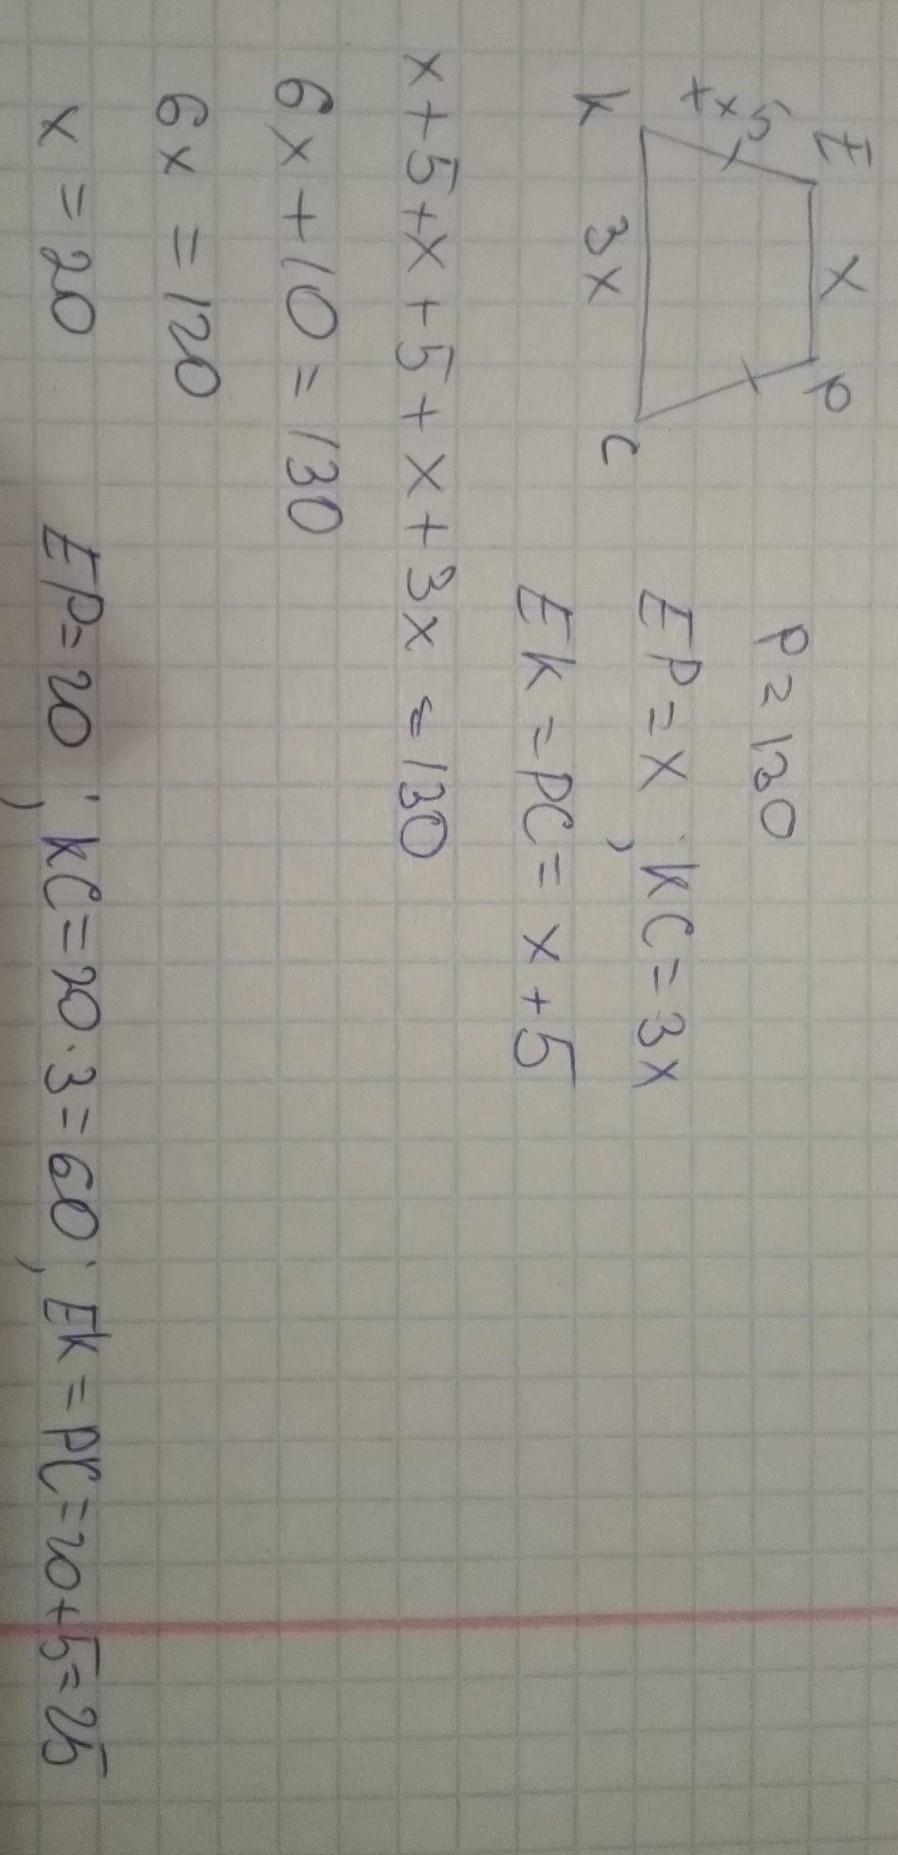 E x P
x+5
K 3x C
P=130
EP=x; KC=3x
EK=PC=x+5
x+5+x+5+x+3x=130
6x+10=130
6x=120
x=20
EP=20; KC=20·3=60; EK=PC=20+5=25